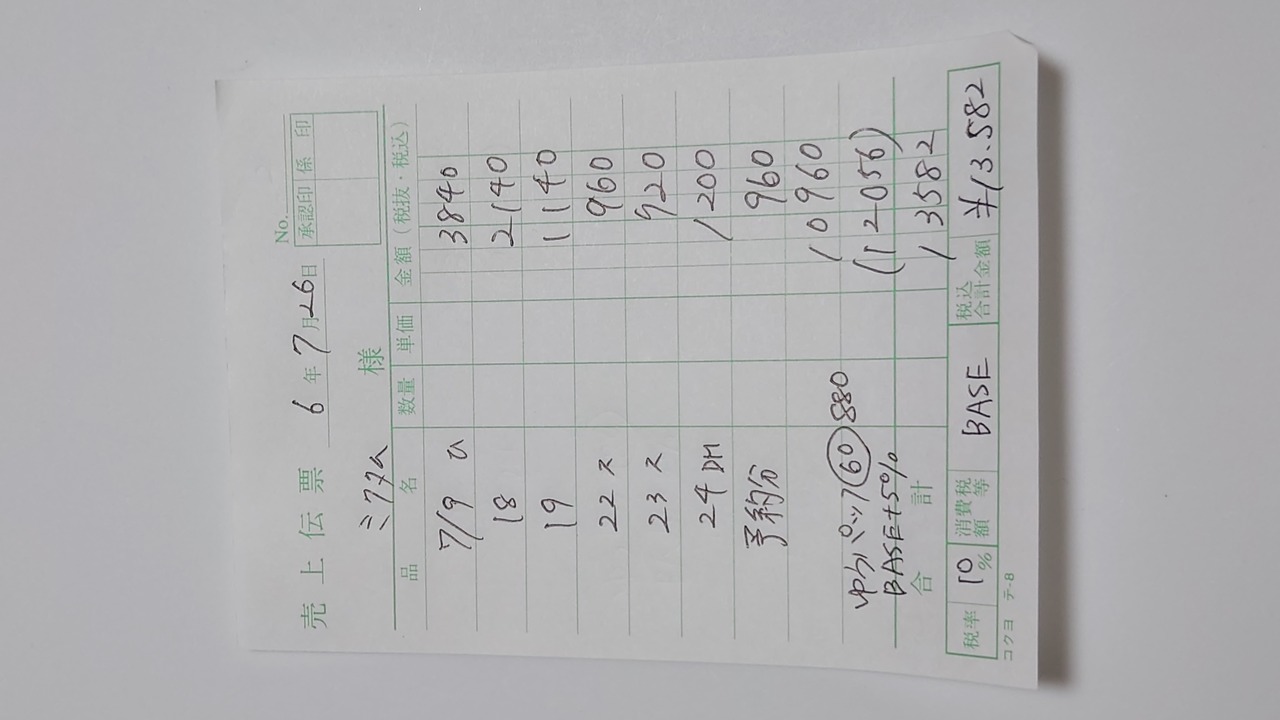 No.
売上伝票 6年7月26日
承認印 係印
ミタム 様
品名 数量 単価 金額(税抜・税込)
7/9 ム 3840
18 2140
19 1140
22 ス 960
23 ス 720
24 DM 1200
予約分 960
10960
ゆうパック 60 880 (12056)
BASE+5%
合計 13582
税率 10% 消費税額等 BASE 税込合計金額 ¥13.582
コクヨ テ-8